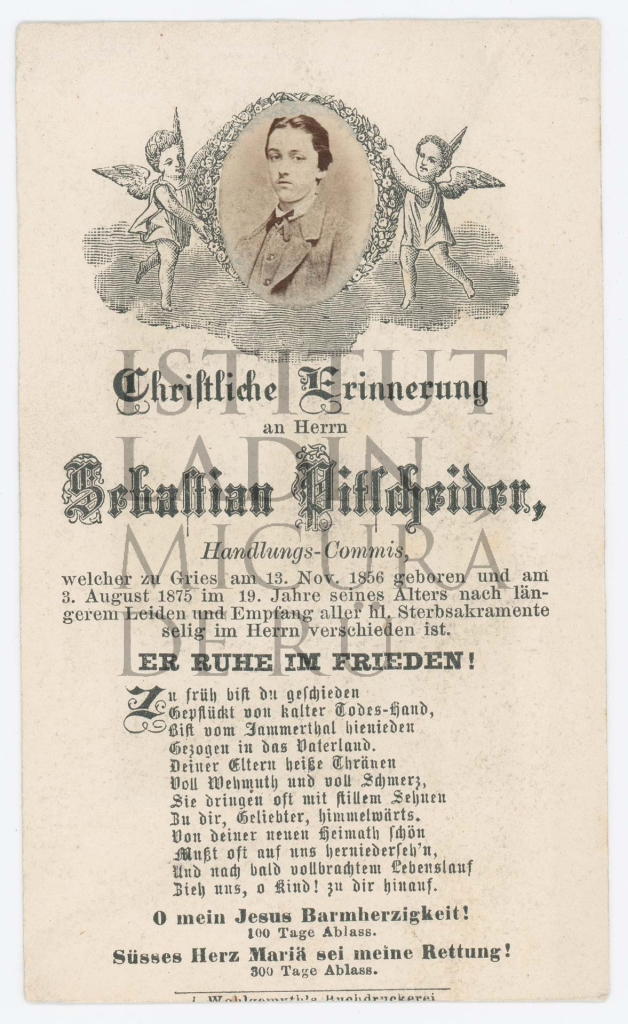 Christliche Erinnerung
an Herrn
Sebastian Pitscheider,
Handlungs-Commis,
welcher zu Gries am 13. Nov. 1856 geboren und am
3. August 1875 im 19. Jahre seines Alters nach län-
gerem Leiden und Empfang aller hl. Sterbsakramente
selig im Herrn verschieden ist.
ER RUHE IM FRIEDEN!
Zu früh bist du geschieden
Gepflückt von kalter Todes-Hand,
Bist vom Jammerthal hienieden
Gezogen in das Vaterland.
Deiner Eltern heiße Thränen
Voll Wehmuth und voll Schmerz,
Sie dringen oft mit stillem Sehnen
Zu dir, Geliebter, himmelwärts.
Von deiner neuen Heimath schön
Mußt oft auf uns herniederseh'n,
Und nach bald vollbrachtem Lebenslauf
Zieh uns, o Kind! zu dir hinauf.
O mein Jesus Barmherzigkeit!
100 Tage Ablass.
Süsses Herz Mariä sei meine Rettung!
300 Tage Ablass.
Wohlgemuth's Buchdruckerei
ISTITUT
LADIN
MICURÁ
DE RÜ